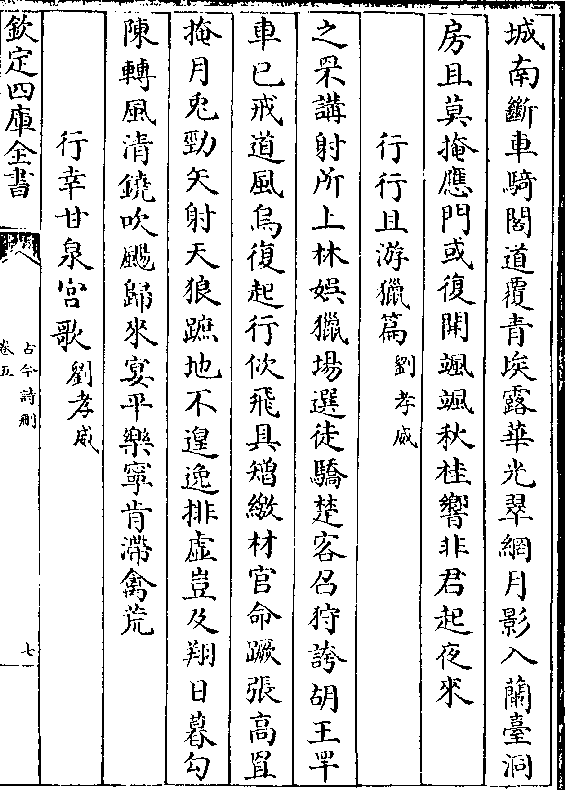 城南斷車騎閣道覆青埃露華光翠網月影入蘭臺洞
房且莫掩應門或復開颯颯秋桂響非君起夜來
行行且游獵篇劉孝威
之罘講射所上林娱獵場選徒驕楚客召狩誇胡王罕
車已戒道風烏復起行佽飛具矰繳材官命蹶張高罝
掩月兎勁矢射天狼蹠地不遑逸排虚豈及翔日暮勾
陳轉風清鐃吹颺歸來宴平樂寧肯滯禽荒
行幸甘泉宫歌劉孝威
欽定四庫全書
古今詩刪
卷五
七